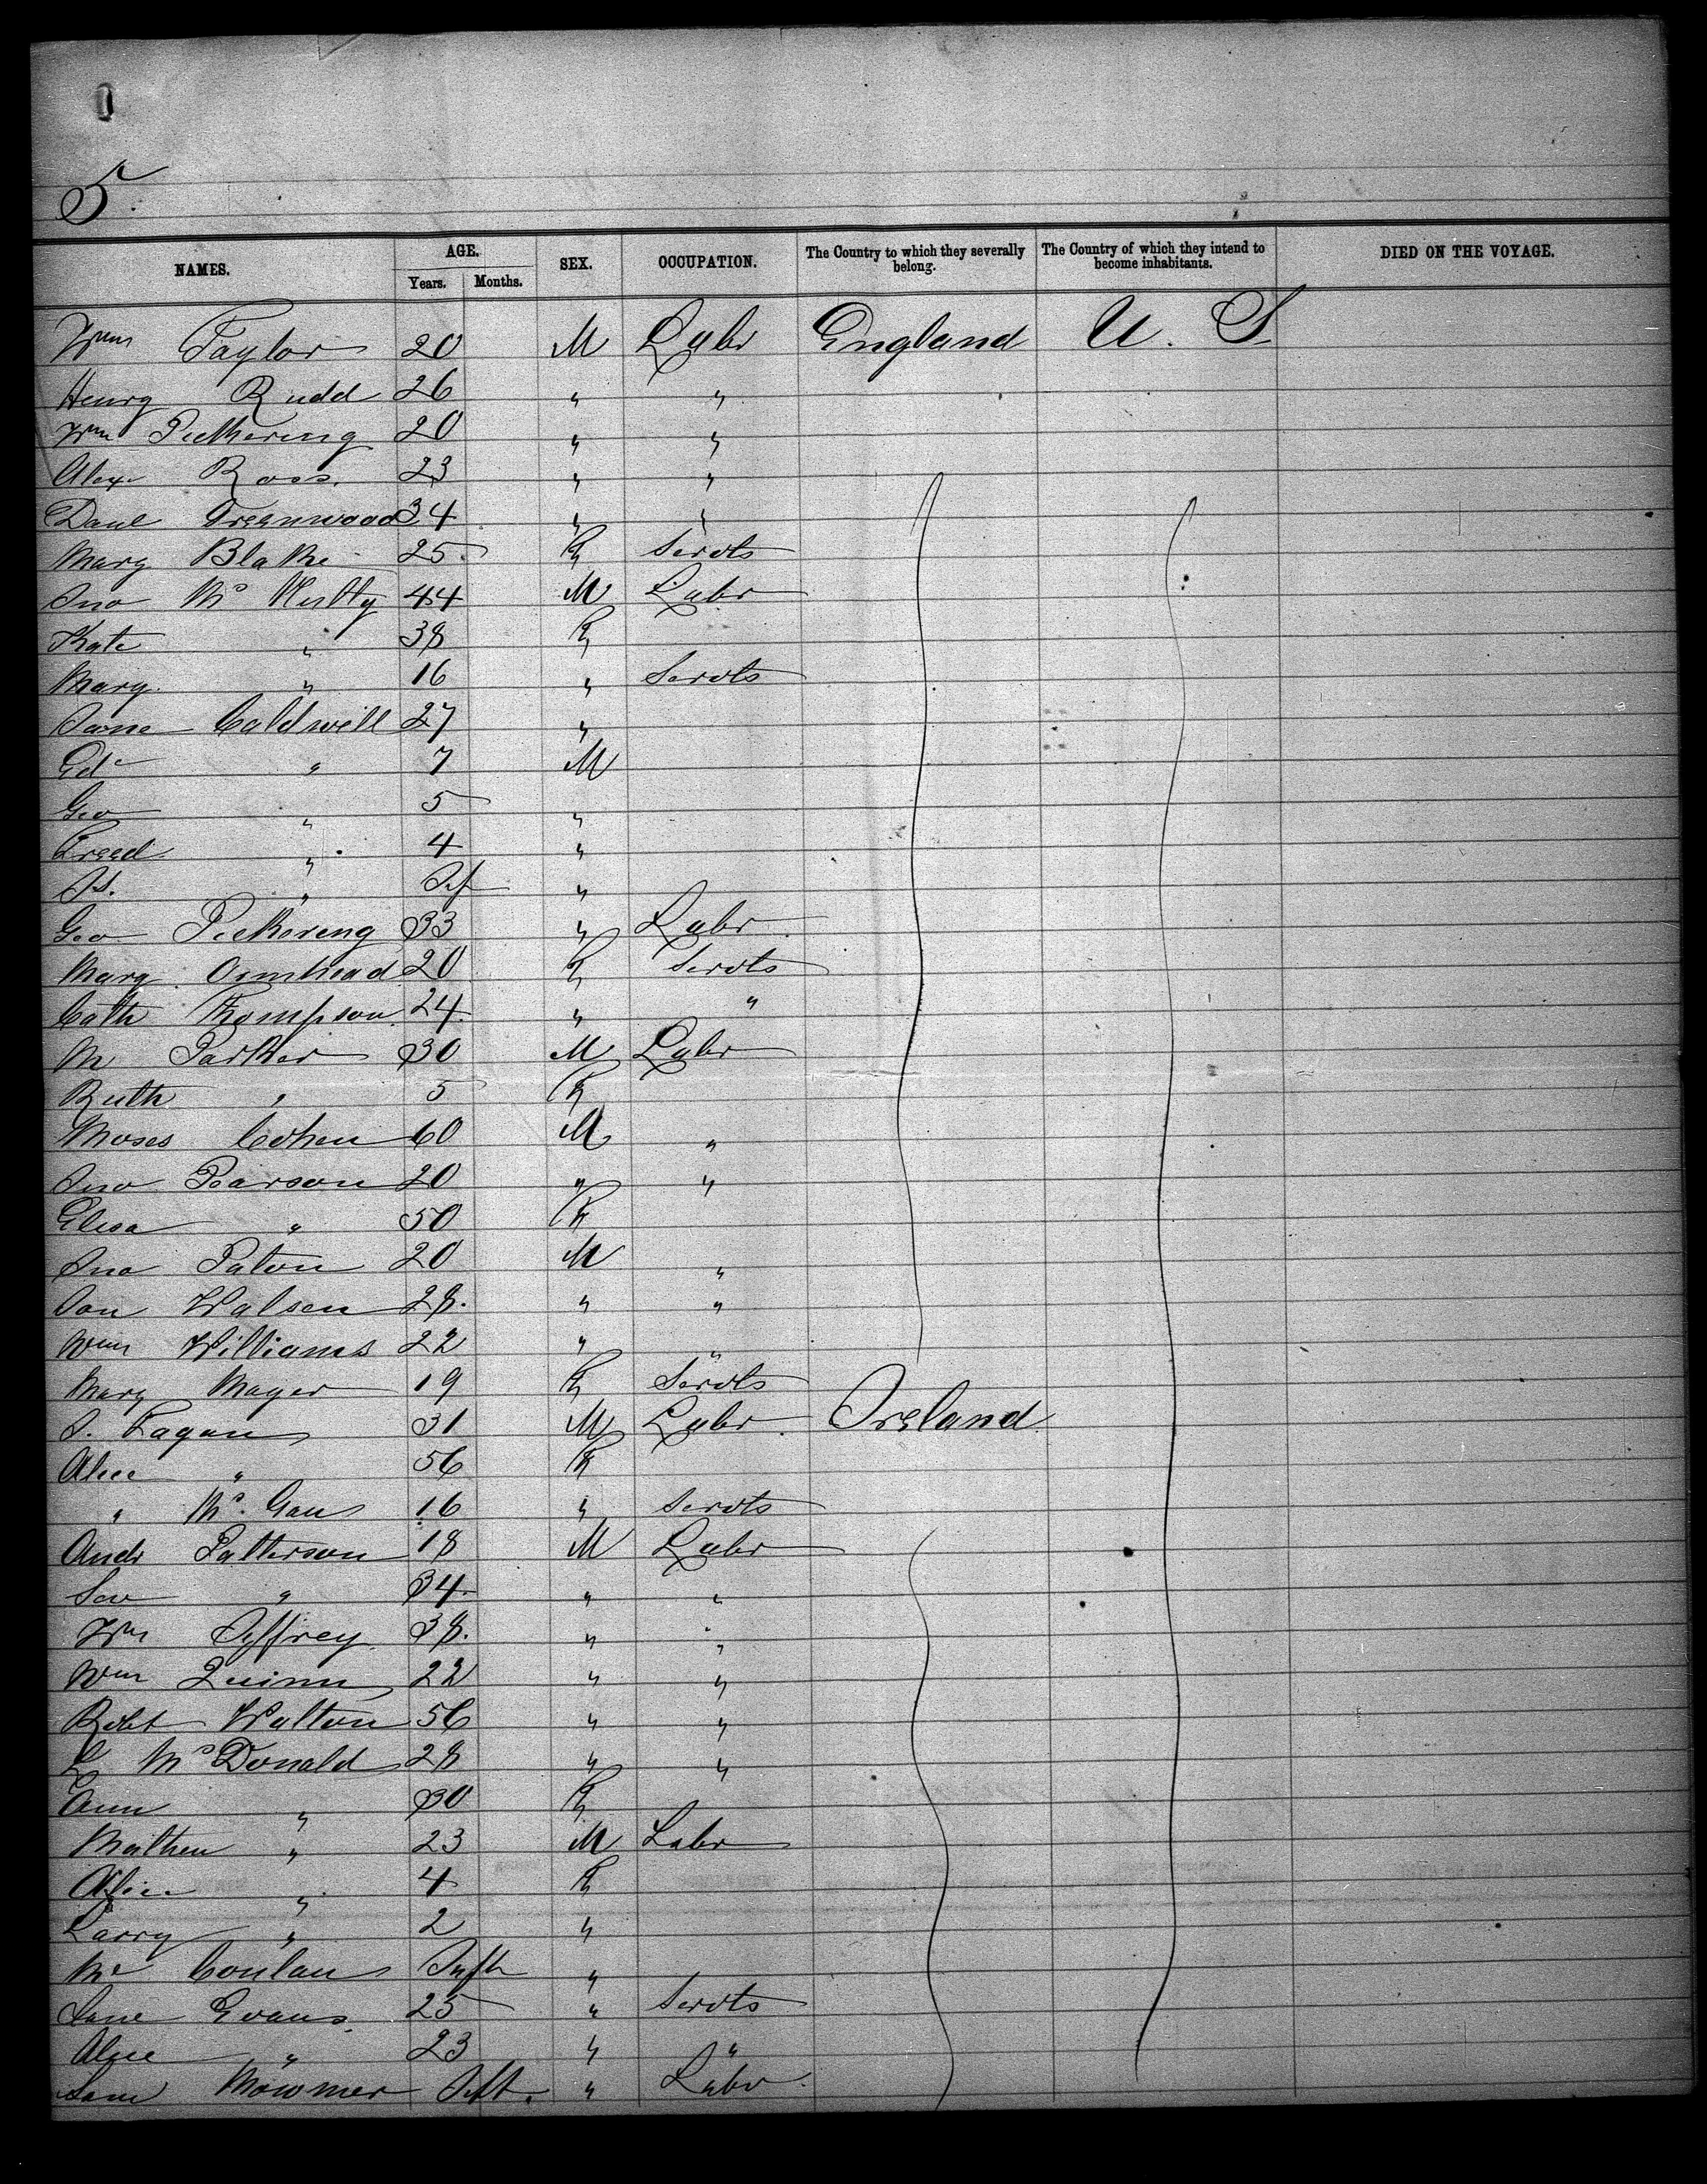 5.
NAMES. AGE. Years. Months. SEX. OCCUPATION. The Country to which they severally belong. The Country of which they intend to become inhabitants. DIED ON THE VOYAGE.
Wm Taylor 20 M Labr England U. S
Henry Rudd 26 " "
Wm Pickering 20 " "
Alexr Ross. 23 " "
Danl Greenwood 34 " "
Mary Blake 25 F Servts
Jno Mc 44 M Labr
Kate " 38 F
Mary " 16 " Servts
Jane Caldwell 27 "
Edd " 7 M
Geo " 5 "
Freed " 4 "
Js. " Inf "
Geo Pickering 33 " Labr
Mary 20 F Servts
Cath Thompson 24 " "
M Parker 30 M Labr
Ruth " 5 F
Moses Cohen 60 M "
Jno Pearson 20 " "
Elisa " 50 F
Jno Paton 20 M "
Walsen 28. " "
Wm Williams 22 " "
Mary Mager 19 F Servts
J. Fagan 31 M Labr Ireland
Alice " 56 F
" Mc Gan 16 " Servts
Andr Patterson 18 M Labr
" 34 " "
Wm Jeffrey 38. " "
Wm Quinn 22 " "
Robt Walton 56 " "
L McDonald 28 " "
Ann " 30 F
Mathew " 23 M Labr
Alice " 4 F
Larry " 2 "
Conlan Inft "
Jane Evans 25 " Servts
Alice " 23 " "
Mowmer Inft. " Labr